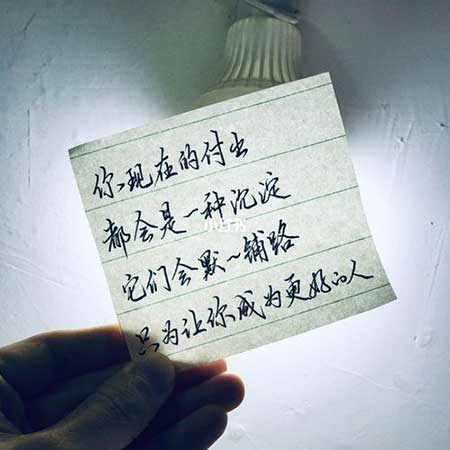 你现在的付出
都会是一种沉淀
它们会默~铺路
只为让你成为更好的人
小红书